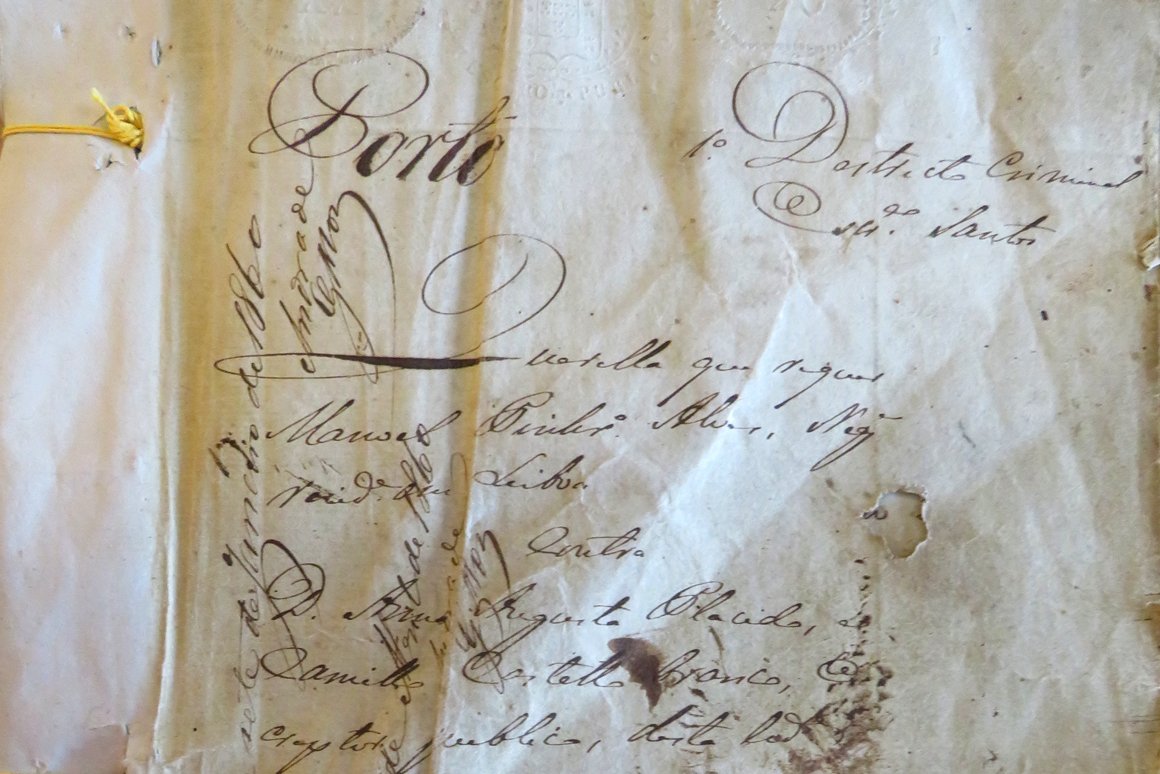 Porto
1º Destricto Criminal
Escr.ão Santos
Querella que requer
Manoel Pinhr.º Alves, Neg.e
resid.e em Lisboa
Contra
D. Anna Augusta Placido, e
Camillo Castello Branco, Es
criptor publico, desta
de Junho de 1860
de 1860